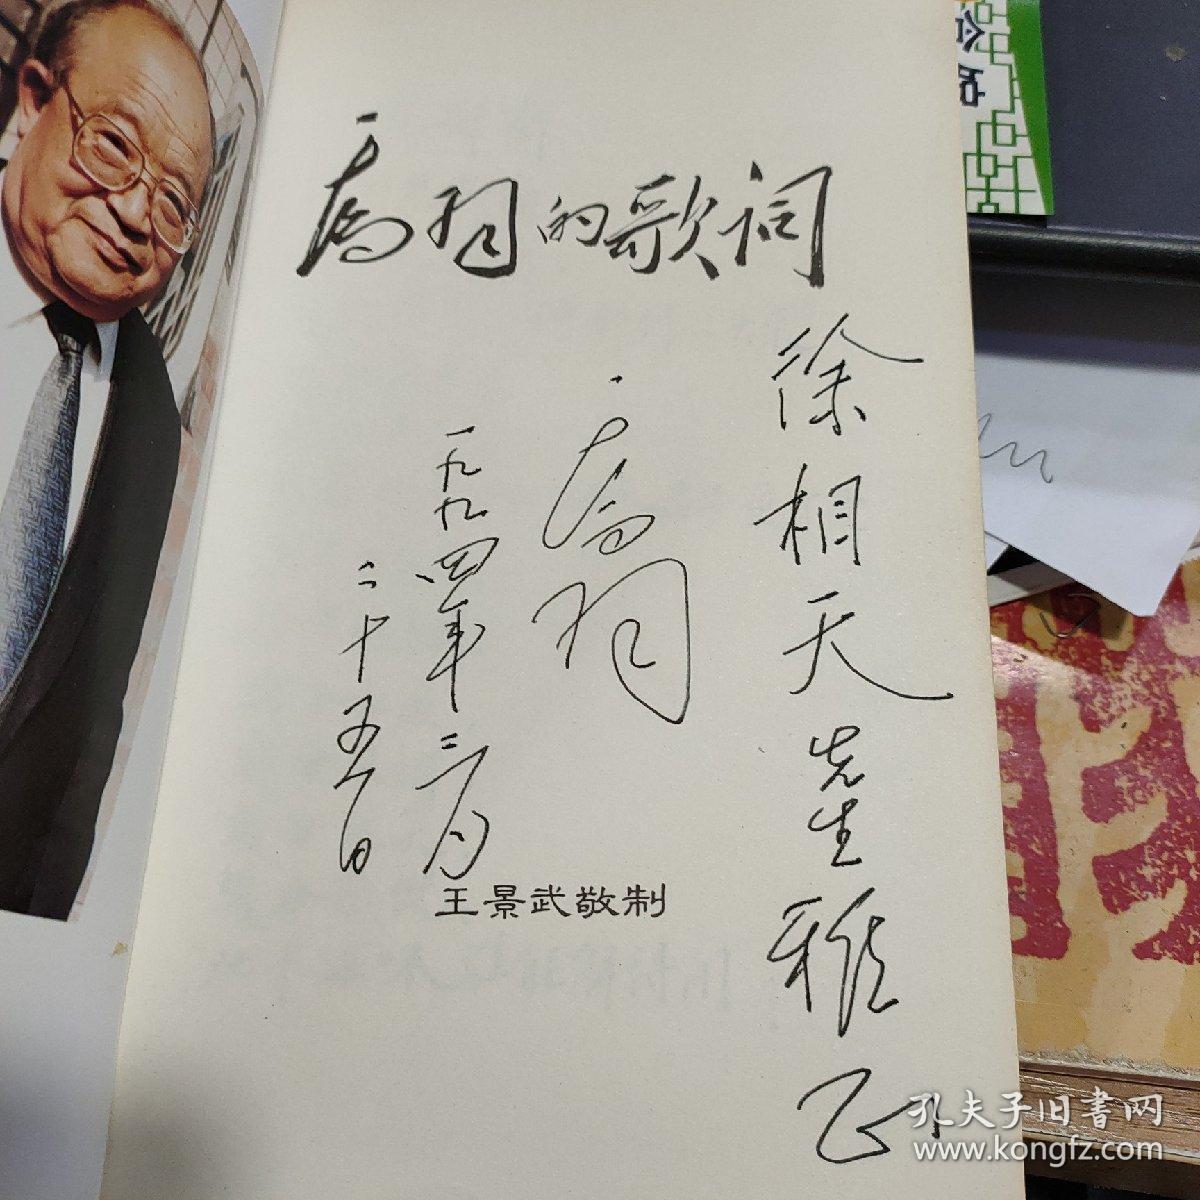 乔羽的歌词
徐相天先生雅正
乔羽
一九九四年二月
二十五日
王景武敬制
孔夫子旧書网
www.kongfz.com